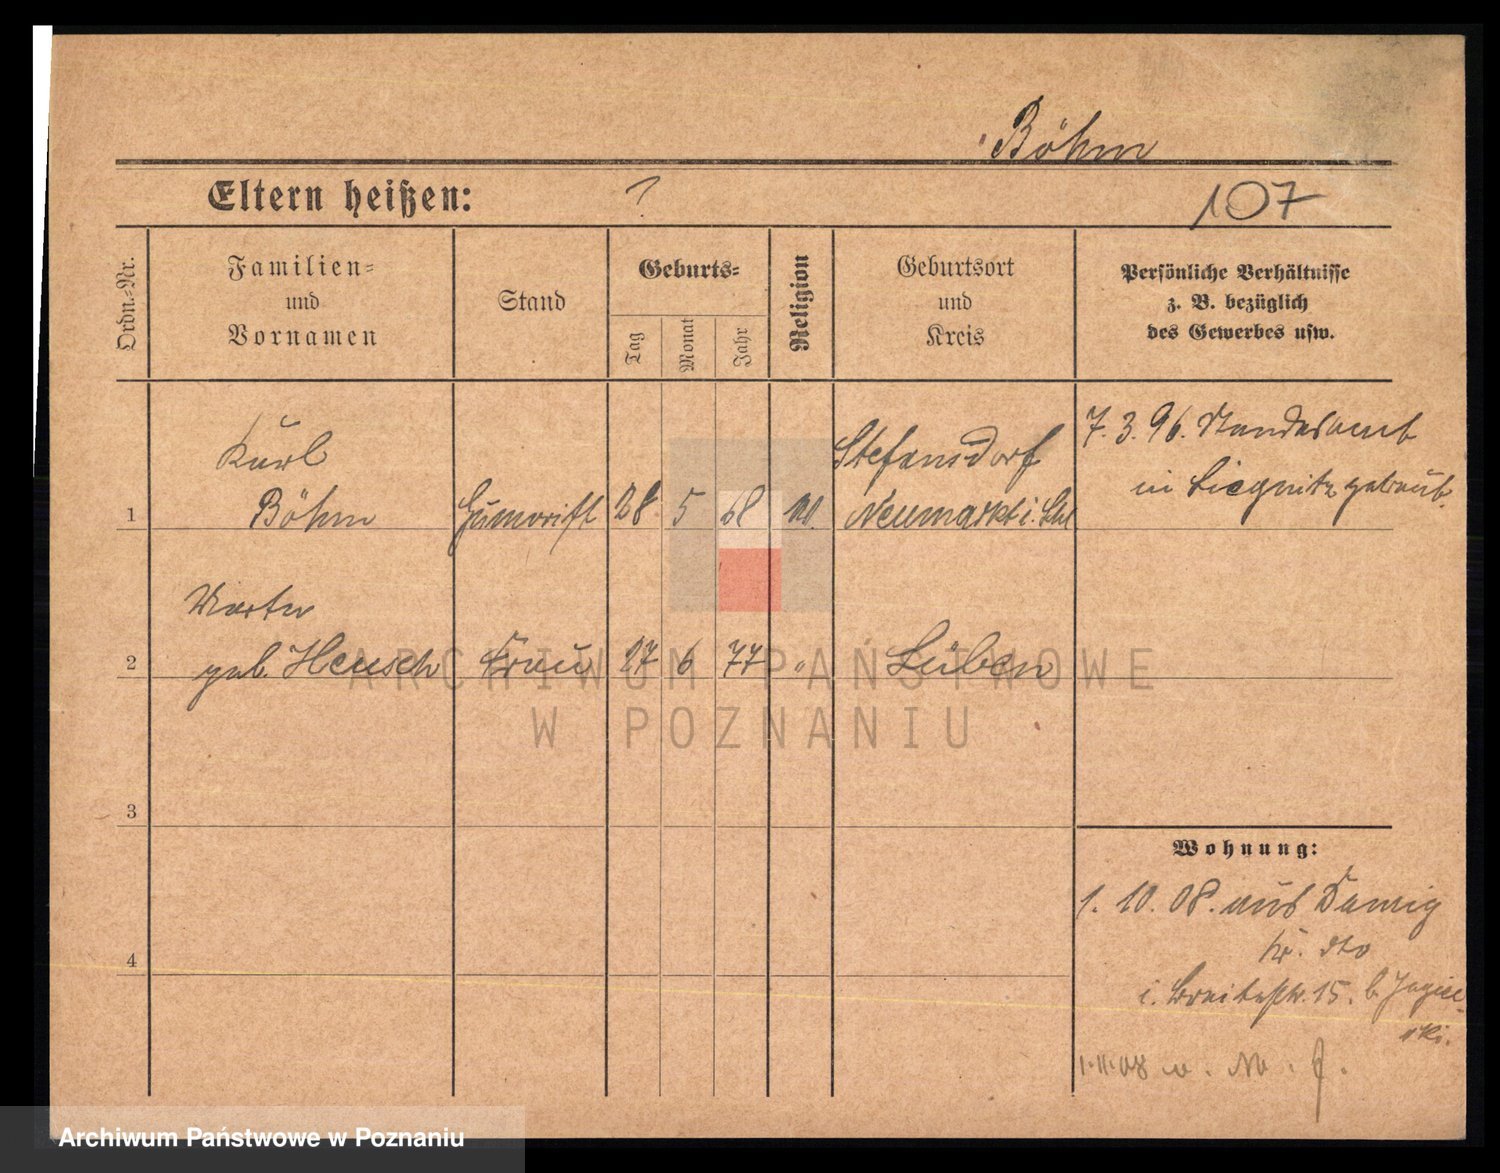 Böhm
Eltern heißen: ?
107
Ordn.-Nr.
Familien-
und
Vornamen
Stand
Geburts-
Tag
Monat
Jahr
Religion
Geburtsort
und
Kreis
Persönliche Verhältnisse
z. B. bezüglich
des Gewerbes usw.
7. 3. 96. Standesamt
in Liegnitz getraut.
Karl
Stefansdorf
1 Böhm 28 5 68 Neumarkt i. Schl
2 geb. Heusch Frau 27 6 77 " Lüben
ARCHIWUM PAŃSTWOWE
W POZNANIU
3
4
Wohnung:
1. 10. 08. aus Danzig
i. Breitestr. 15. b. Jagiel-
ski.
1.11.08
Archiwum Państwowe w Poznaniu